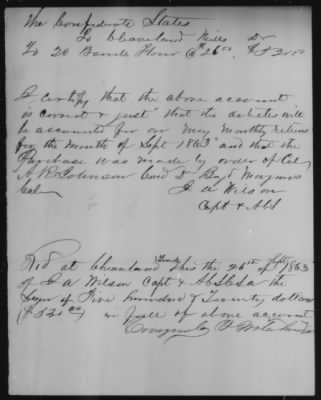 The Confederate States
To Cleaveland Mills Dr
To 20 Barrels Flour @ 26 00 $520 00
I certify that the above account
is correct & just that the articles will
be accounted for on my Monthly returns
for the month of Sept 1863 and that the
Purchase was made by order of Col
A R Johnson
J A Wilson
Capt &
Recd at Cleaveland Tenn this the 26th of Sept 1863
of J A Wilson Capt & the
Sum of Five hundred & Twenty dollars
($520 00) in full of above account